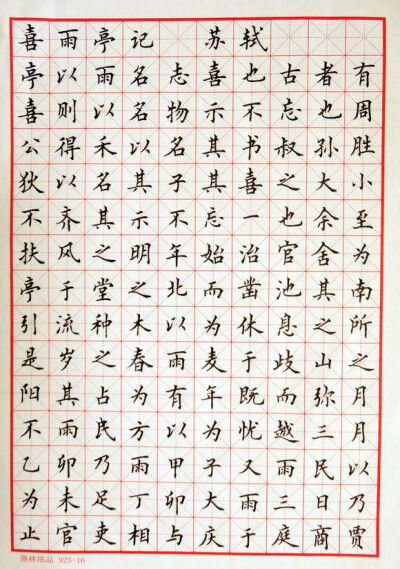 喜雨亭记 苏轼
亭以雨名志喜也古者有
喜则以名物示不忘也周
公得禾以名其书叔孙胜
狄以名其子其喜之大小
不齐其示不忘一也余至
扶风之明年始治官舍为
亭于堂之北而凿池其南
引流种木以为休息之所
是岁之春雨麦于歧山之
阳其占为有年既而弥月
不雨民方以为忧越三月
乙卯乃雨甲子又雨民以
为未足丁卯大雨三日乃
止官吏相与庆于庭商贾
强林纸品 925-16